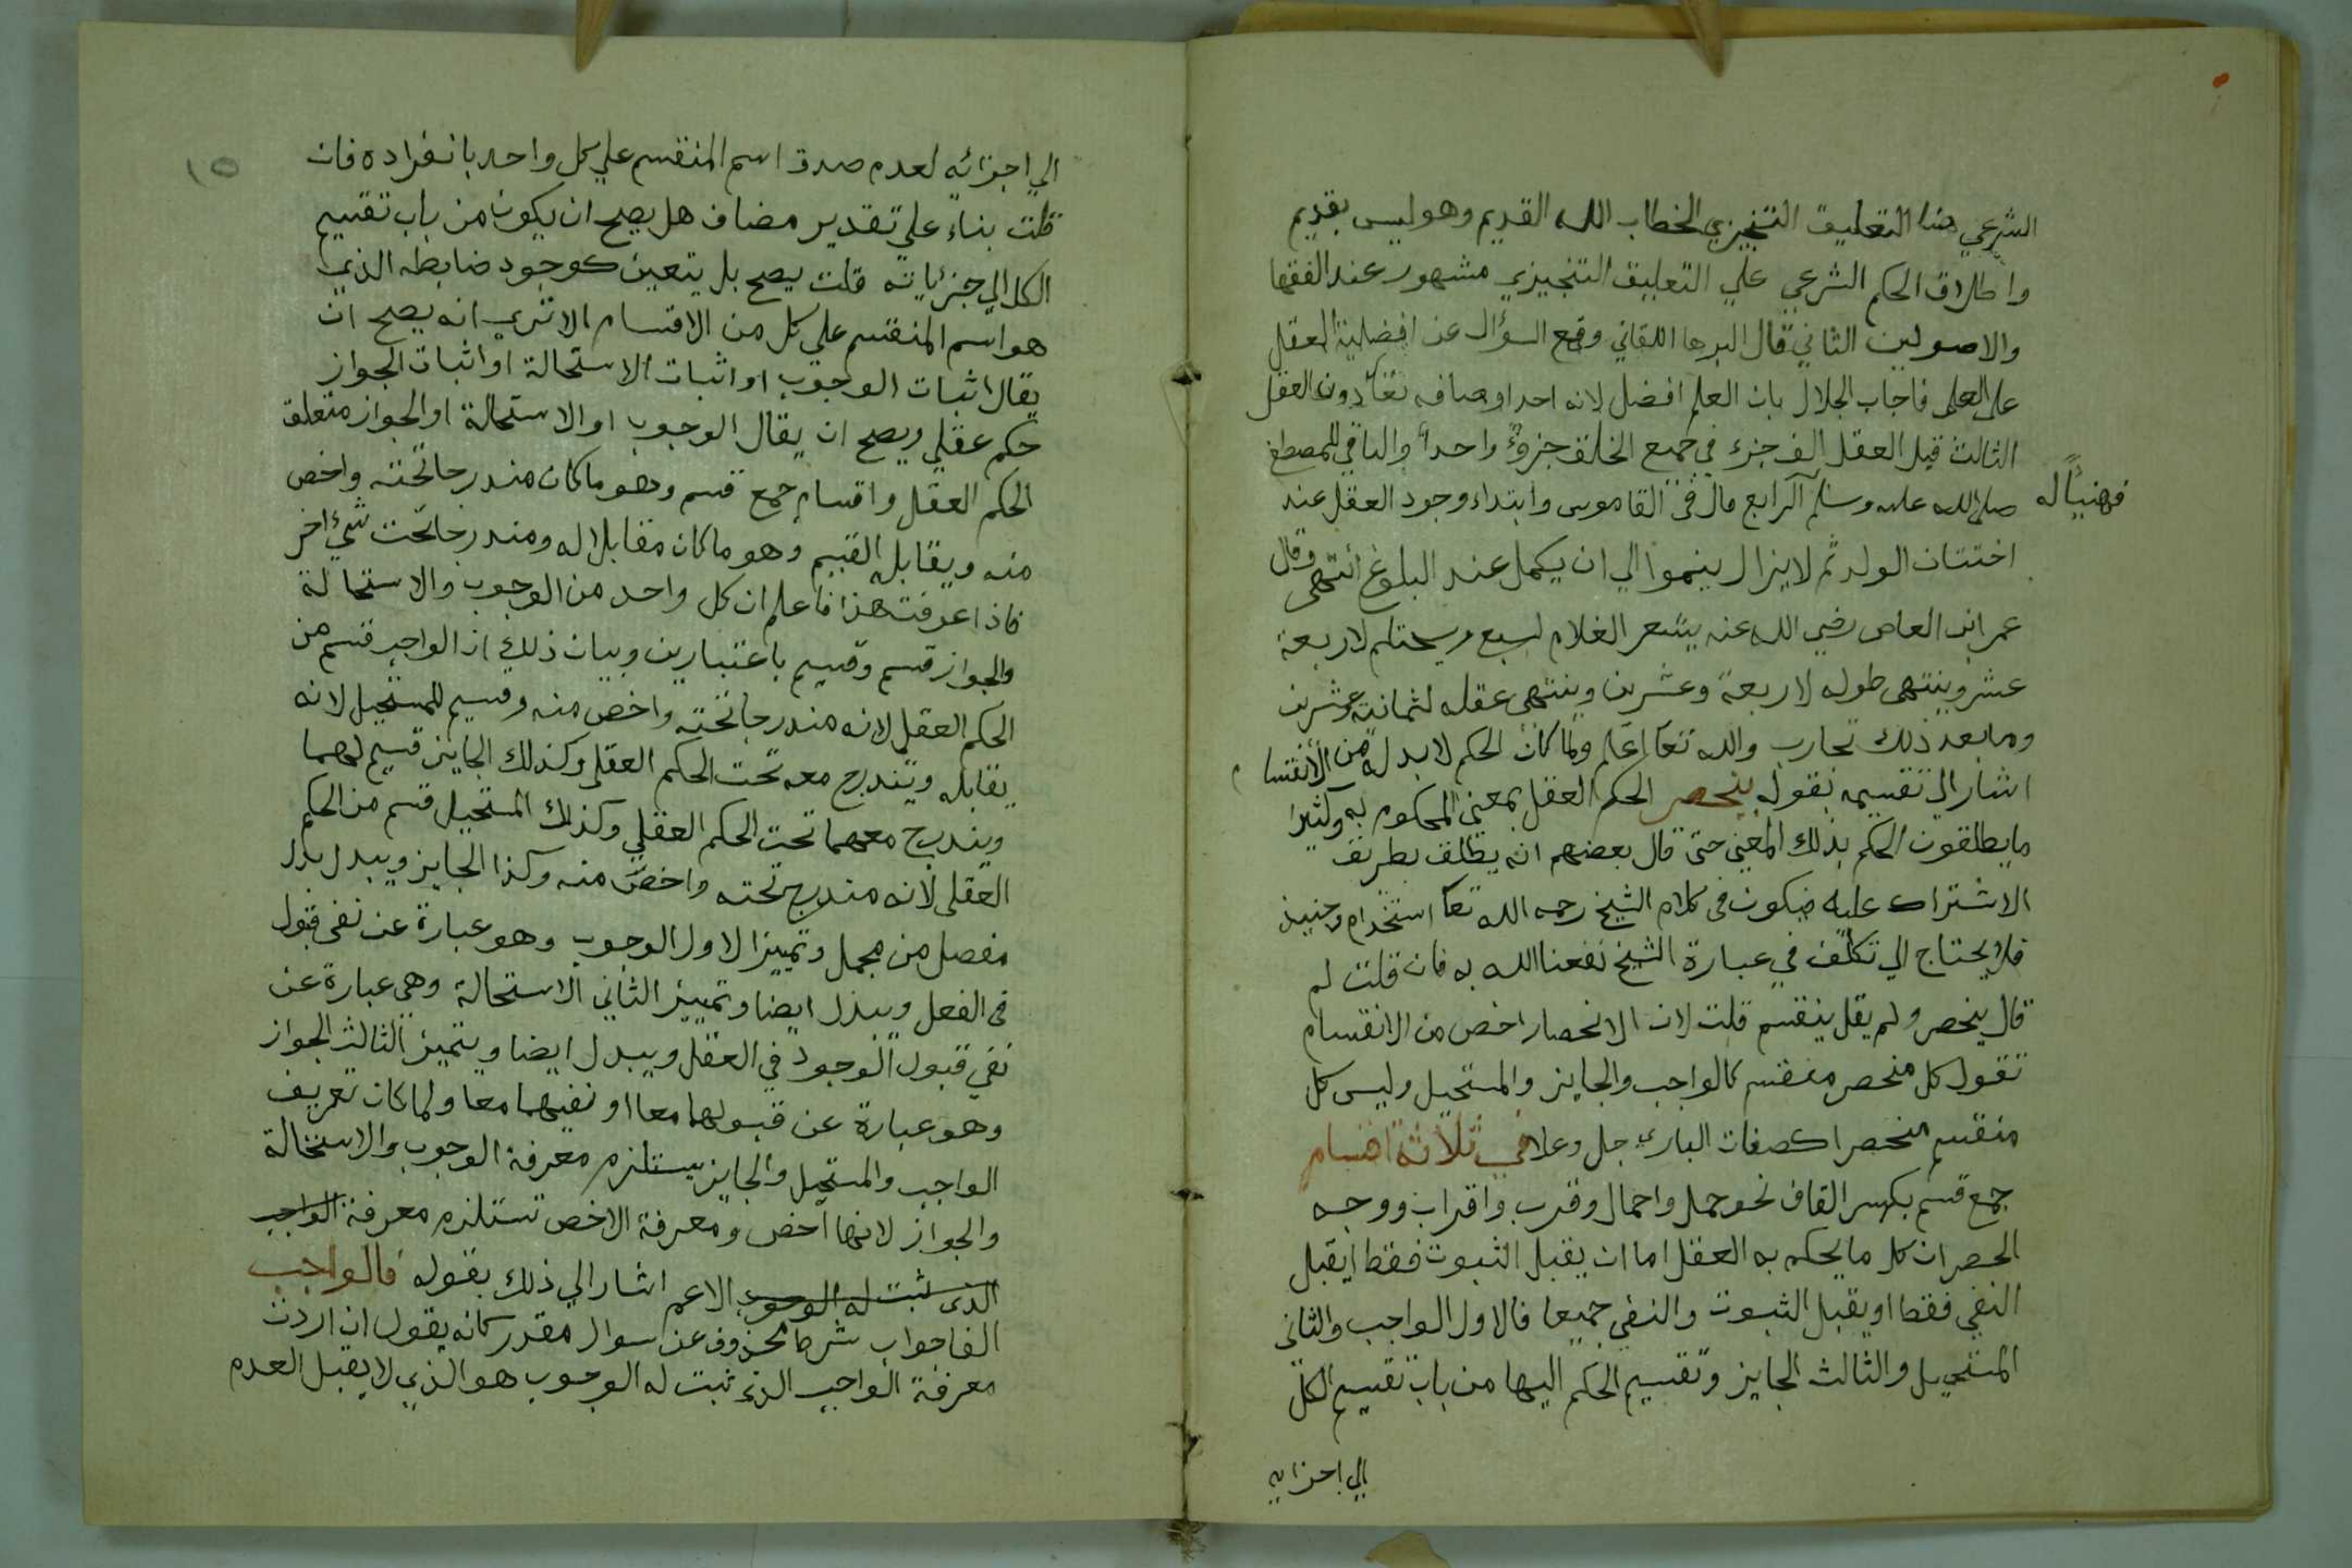 الشرعي هنا التعليق التنجيزي لخطاب الله القديم وهو ليس بقديم
واطلاق الحكم الشرعي علي التعليق التنجيزي مشهور عند الفقها
والاصولين الثاني قال البرها اللقاني وقع السؤال عن افضلية العقل
على العلم فاجاب الجلال بان العلم افضل لانه احد اوصافه تعا دون العقل
الثالث قيل العقل الف جزء في جميع الخلق جزؤ واحدا والباقي للمصطفى
فهنيأ له
صلى الله عليه وسلم الرابع قال فى القاموس وابتداء وجود العقل عند
اختتان الولد ثم لا يزال ينموا الي ان يكمل عند البلوغ انتهى وقال
عمر ابن العاص رضي الله عنه يثغر الغلام لسبع ويحتلم لاربعة
عشر وينتهى طوله لاربعة وعشرين وينتهى عقله لثمانية وعشرين
وما بعد ذلك تجارب والله تعا اعلم ولما كان الحكم لا بد له من الانقسام
اشار الى تقسيمه بقوله ينحصر الحكم العقل بمعنى المحكوم به وكثيرا
ما يطلقون الحكم بذلك المعنى حتى قال بعضهم انه يطلق بطريق
الاشتراك عليه فيكون فى كلام الشيخ رحمه الله تعا استخدام وحنيذ
فلا يحتاج الي تكلف في عبارة الشيخ نفعنا الله به فان قلت لم
قال ينحصر ولم يقل ينقسم قلت لان الانحصار اخص من الانقسام
تقول كل منحصر منقسم كالواجب والجايز والمستحيل وليس كل
منقسم منحصرا كصفات الباري جل وعلا في ثلاثة اقسام
جمع قسم بكسر القاف نحو حمل واحمال وقرب واقراب ووجه
الحصر ان كل ما يحكم به العقل اما ان يقبل الثبوت فقط ا يقبل
النفي فقط او يقبل الثبوت والنفي جميعا فالاول الواجب والثانى
المستحيل والثالث الجايز وتقسيم الحكم اليها من باب تقسيم الكل
الي اجزايه
١٥
الي اجزائه لعدم صدق اسم المنقسم علي كل واحد بانفراده فان
قلت بناء علي تقدير مضاف هل يصح ان يكون من باب تقسيم
الكل الي جزئياته قلت يصح بل يتعين كوجود ضابطه الذي
هو اسم المنقسم على كل من الاقسام الا ترى انه يصح ان
يقال اثبات الوجوب او اثبات الاستحالة او اثبات الجواز
حكم عقلي ويصح ان يقال الوجوب او الاستحالة او الجواز متعلق
الحكم العقل واقسام جمع قسم وهو ما كان مندرجا تحته واخص
منه ويقابله القسيم وهو ما كان مقابلا له ومندرجا تحت شئ اخر
فاذا عرفت هذا فاعلم ان كل واحد من الوجوب والاستحالة
والجواز قسم وقسيم باعتبارين وبيان ذلك ان الواجب قسم من
الحكم العقل لانه مندرجا تحته واخص منه وقسيم للمستحيل لانه
يقابله ويندرج معه تحت الحكم العقلى وكذلك الجايز قسيم لهما
ويندرج معهما تحت الحكم العقلي وكذلك المستحيل قسم من الحكم
العقلى لانه مندرج تحته واخص منه وكذا الجايز ويبدل بدل
مفصل من مجمل وتمييز الاول الوجوب وهو عبارة عن نفى قبول
فى الفعل ويبدل ايضا وتمييز الثاني الاستحالة وهي عبارة عن
نفي قبول الوجود في العقل ويبدل ايضا ويتميز الثالث الجواز
وهو عبارة عن قبولهما معا او نفيهما معا ولما كان تعريف
الواجب والمستحيل والجايز يستلزم معرفة الوجوب والاستحالة
والجواز لانها اخص ومعرفة الاخص تستلزم معرفة الواجب
الذى ثبت له الوجوب الاعم اشار الي ذلك بقوله فالواجب
الفا جواب شرط محذوف عن سوال مقدر كانه يقول ان اردت
معرفة الواجب الذي ثبت له الوجوب هو الذي لا يقبل العدم